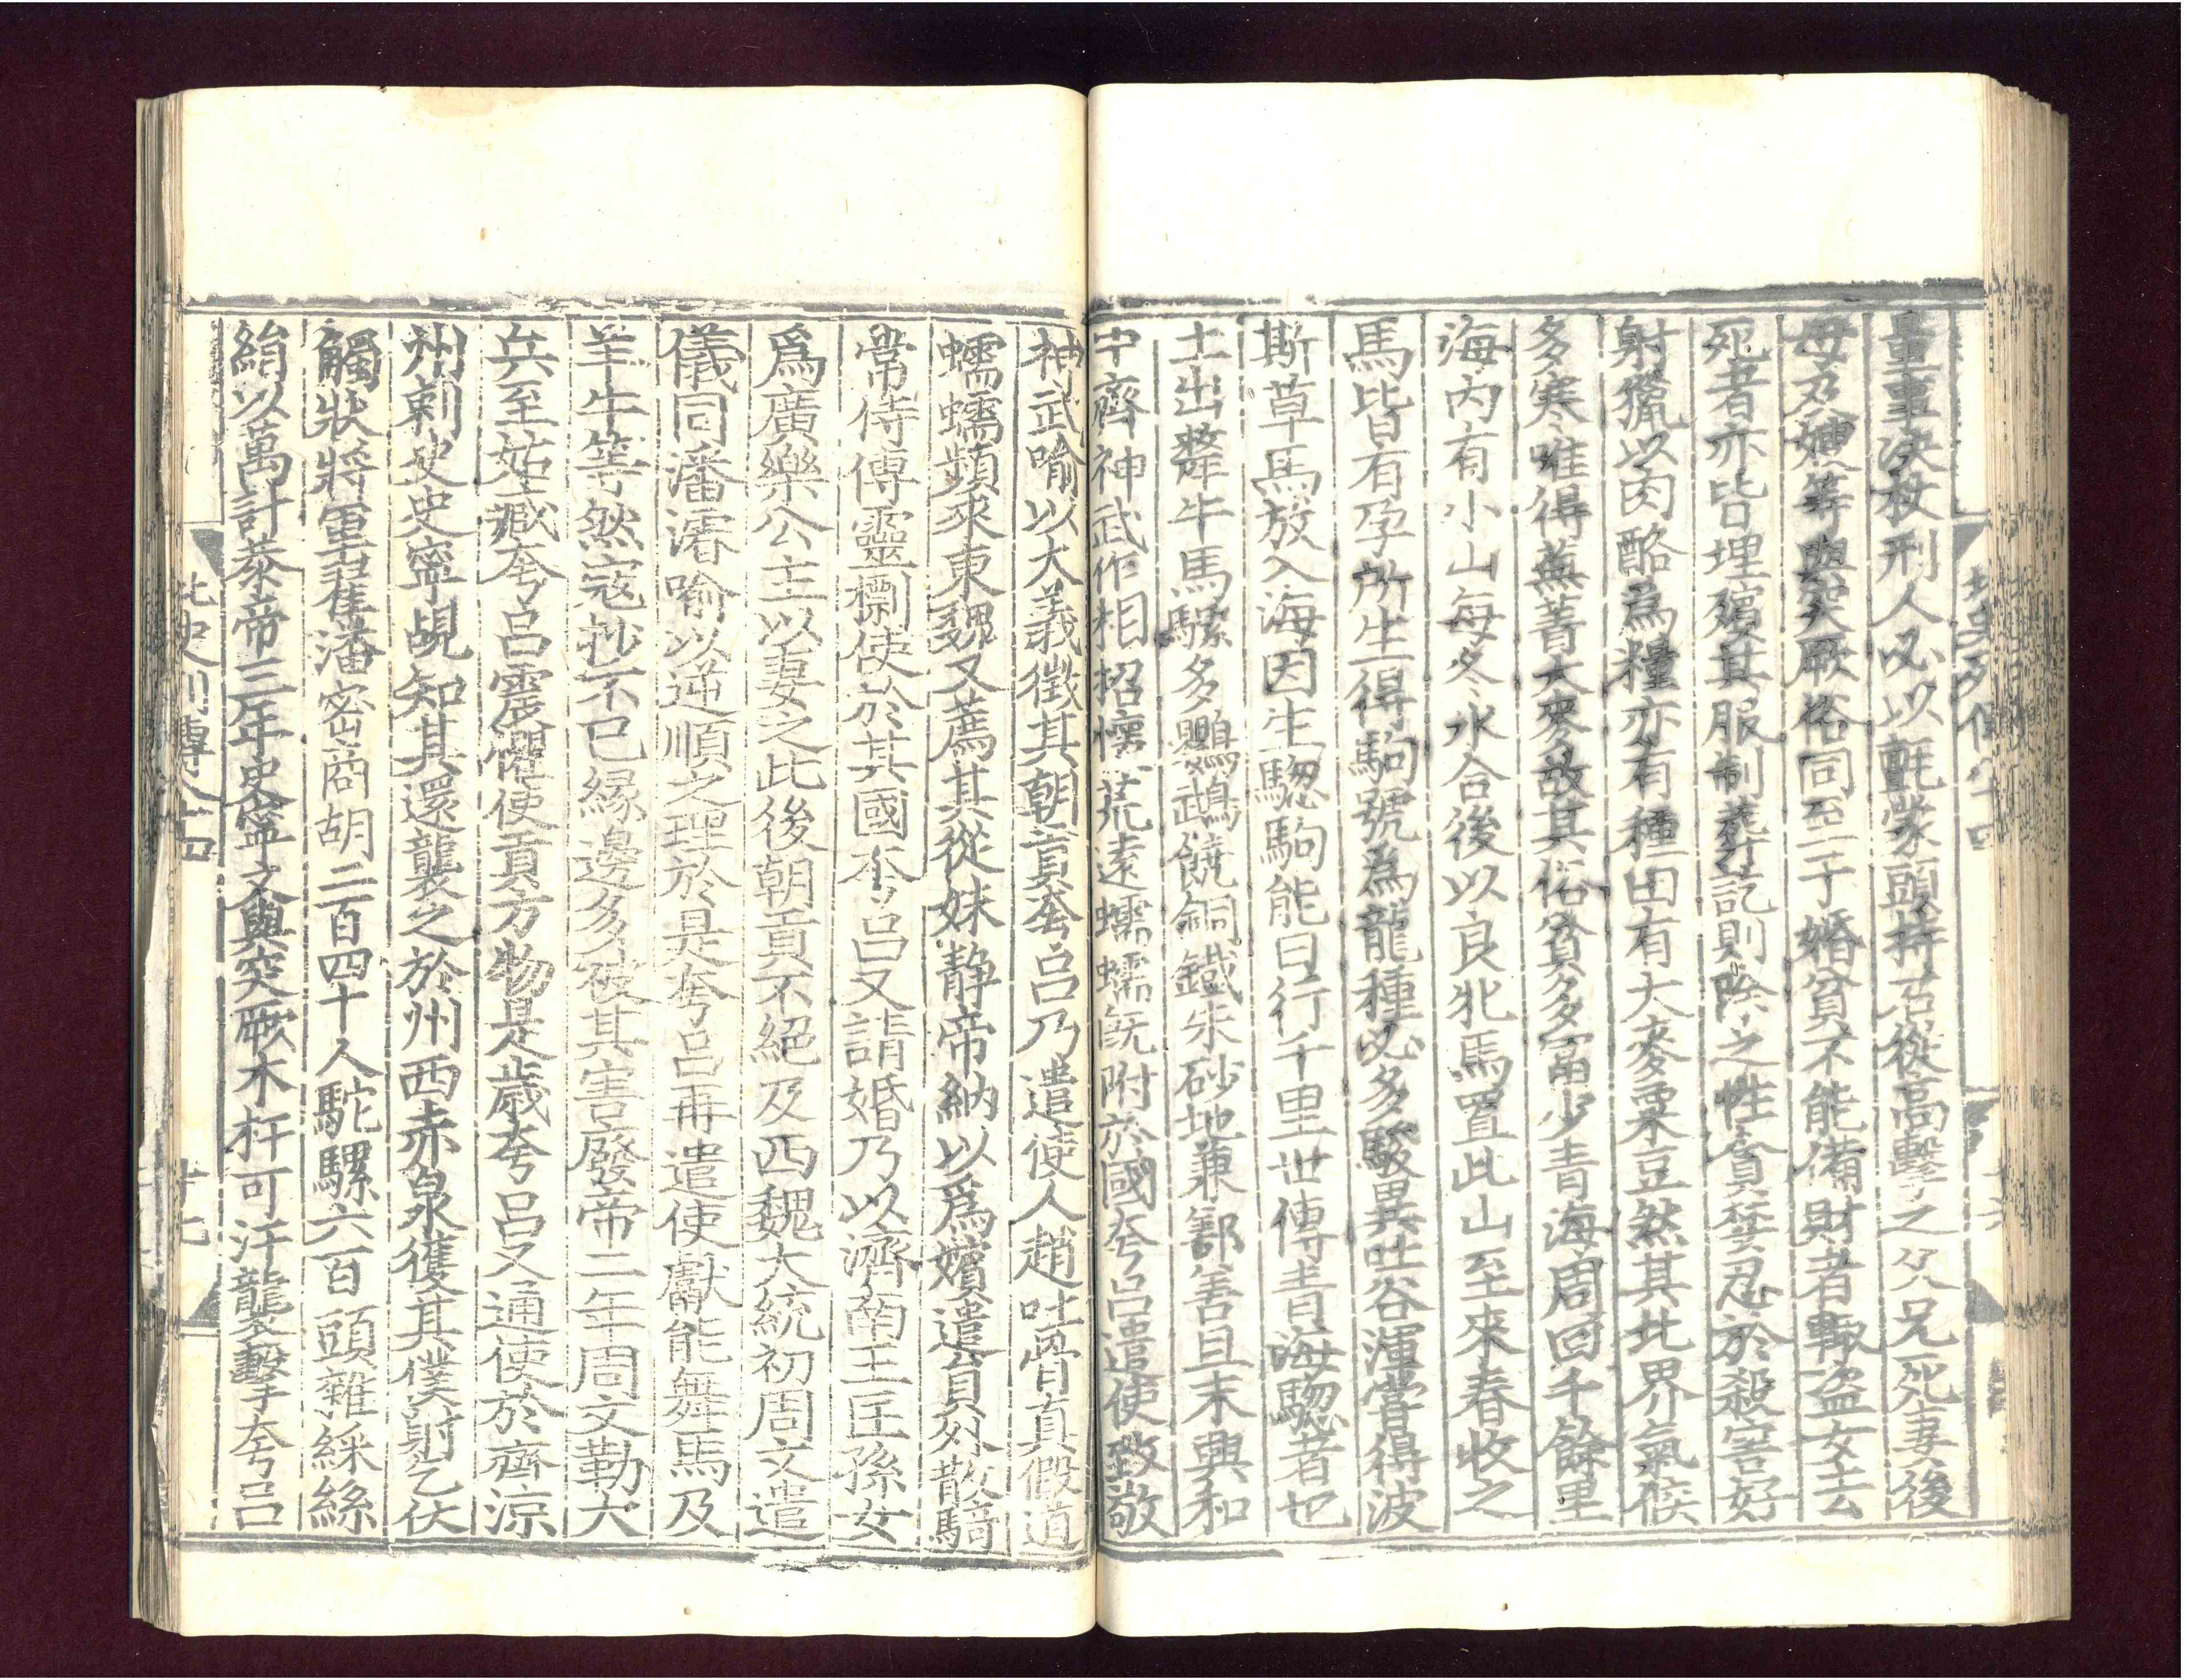 量事決杖刑人必以氈蒙頭持石從高擊之父兄死妻後
母及嫂等與突厥俗同至于婚貧不能備財者輒盜女去
死者亦皆埋殯其服制葬訖則除之性貪婪忍於殺害好
射獵以肉酪為糧亦有種田有大麥粟豆然其北界氣候
多寒唯得蕪菁大麥故其俗貧多富少青海周回千餘里
海內有小山每冬冰合後以良牝馬置此山至來春收之
馬皆有孕所生得駒號為龍種必多駿異吐谷渾嘗得波
斯草馬放入海因生驄駒能日行千里世傳青海驄者也
土出犛牛馬騾多鸚鵡饒銅鐵朱砂地兼鄯善且末興和
中齊神武作相招懷荒遠蠕蠕旣附於國夸呂遣使致敬
北史列傳八十四
神武喻以大義徵其朝貢夸呂乃遣使人趙吐骨真假道
蠕蠕頻來東魏又薦其從妹靜帝納以爲嬪遣員外散騎
常侍傅靈檦使於其國夸呂又請婚乃以濟南王匡孫女
爲廣樂公主以妻之此後朝貢不絕及西魏大統初周文遣
儀同潘濬喻以逆順之理於是夸呂再遣使獻能舞馬及
羊牛等然寇抄不已緣邊多被其害廢帝二年周文勒大
兵至姑臧夸呂震懼使貢方物是歲夸呂又通使於齊涼
州刺史史寧覘知其還襲之於州西赤泉獲其僕射乞伏
觸狀將軍翟潘密商胡二百四十人駝騾六百頭雜綵絲
絹以萬計恭帝三年史寧又與突厥木杆可汗襲擊夸呂
北史列傳八十四
十七